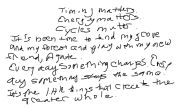 Timing matters
Cherry matters
Cycles matter
It's been nice to find my grove
and my forest and play with my new
friend, Agate.
Every day something changes Every
day something stays the same.
It's the little things that create the
greater whole.